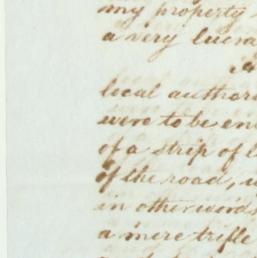 my property
a very lucra
local author
were to be en
of a strip of l
of the road,
in other words
a mere trifle